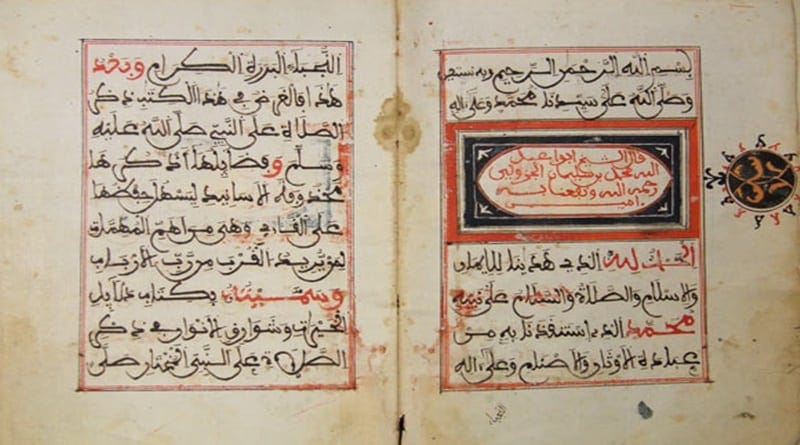 بسم الله الرحمن الرحيم وبه نستعين
وصلى الله على سيدنا محمد وعلى اله
قال الشيخ ابو عبد
الله محمد بن سليمان الجزولي
رحمه الله ونفعنا به
امين
الحمد لله الذي هدينا للايمان
والاسلام والصلاة والسلام على نبيه
محمد الذي استنقذنا به من
عبادة الاوثان والاصنام وعلى اله
النجباء البررة الكرام وبعد
هذا فالغرض في هذا الكتب ذكر
الصلاة على النبي صلى الله عليه
وسلم وفضايلها اذكرها
محذوفة الاسانيد ليسهل حفظها
على القارئ وهي من اهم المهمات
لمن يريد القرب من رب الارباب
وسميته بكتاب دلايل
الخيرات وشوارق الانوار في ذكر
الصلاة على النبي المختار صلى